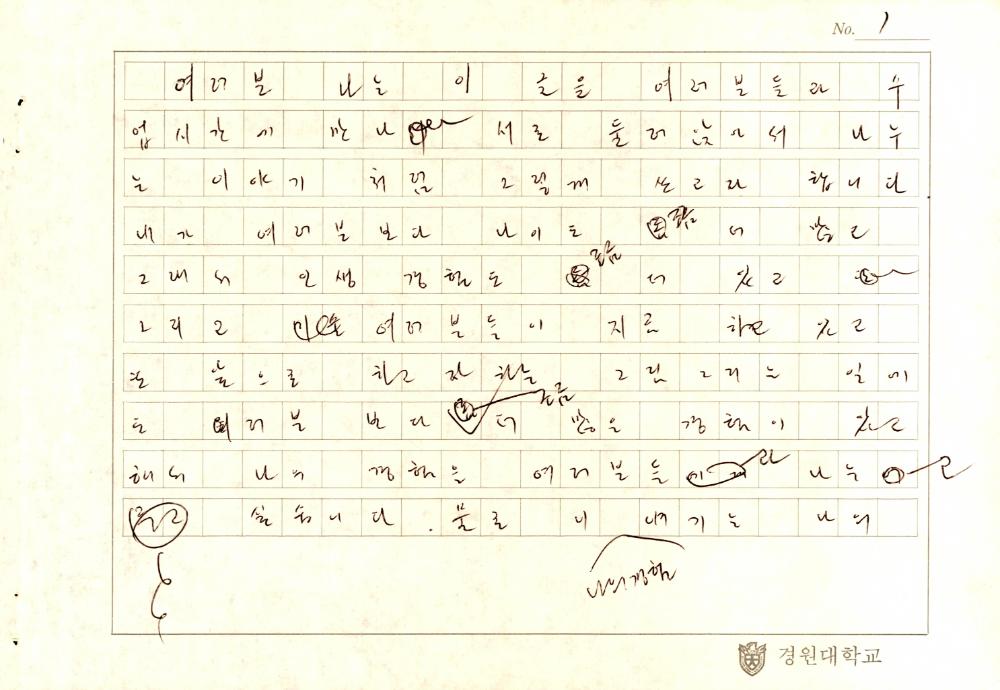 No. 1
여러분 나는 이 글을 여러분들과 수
업시간에 만나 서로 둘러 앉아서 나누
는 이야기 처럼 그렇게 쓰고자 합니다
내가 여러분 보다 나이도 조금 더 많고
그래서 인생 경험도 조금 더 있고
그리고 여러분들이 지금 하고 있고
또 앞으로 하고자 하는 그림 그리는 일에
도 여러분 보다 조금 더 많은 경험이 있고
해서 나의 경험을 여러분들과 나누고
싶습니다. 물론 내 얘기는 나의
나의 경험
경원대학교